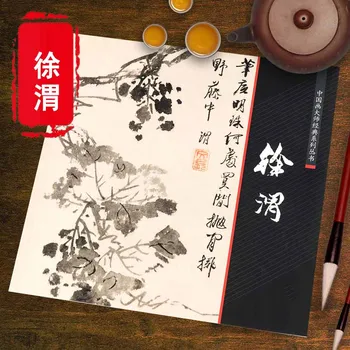 徐渭
中国画大师经典系列丛书
徐渭
筆底明珠處閒拋閒擲
野藤中 渭